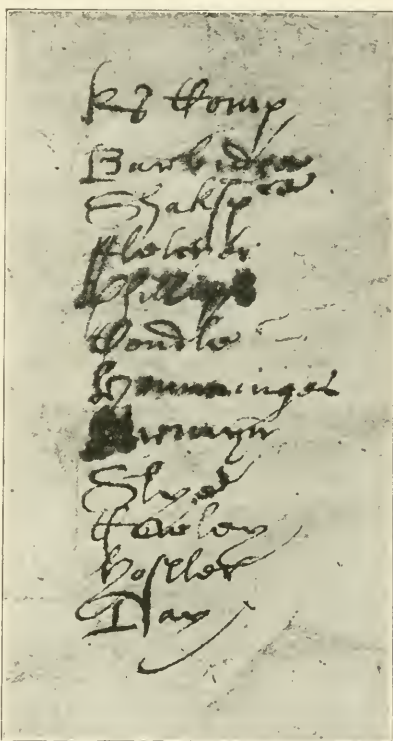 Ks Comp
Burbidge
Shaksp
Fletcher
Phillips
Condle
Hemminges
Armyn
Slye
Cowley
Hostler
Day